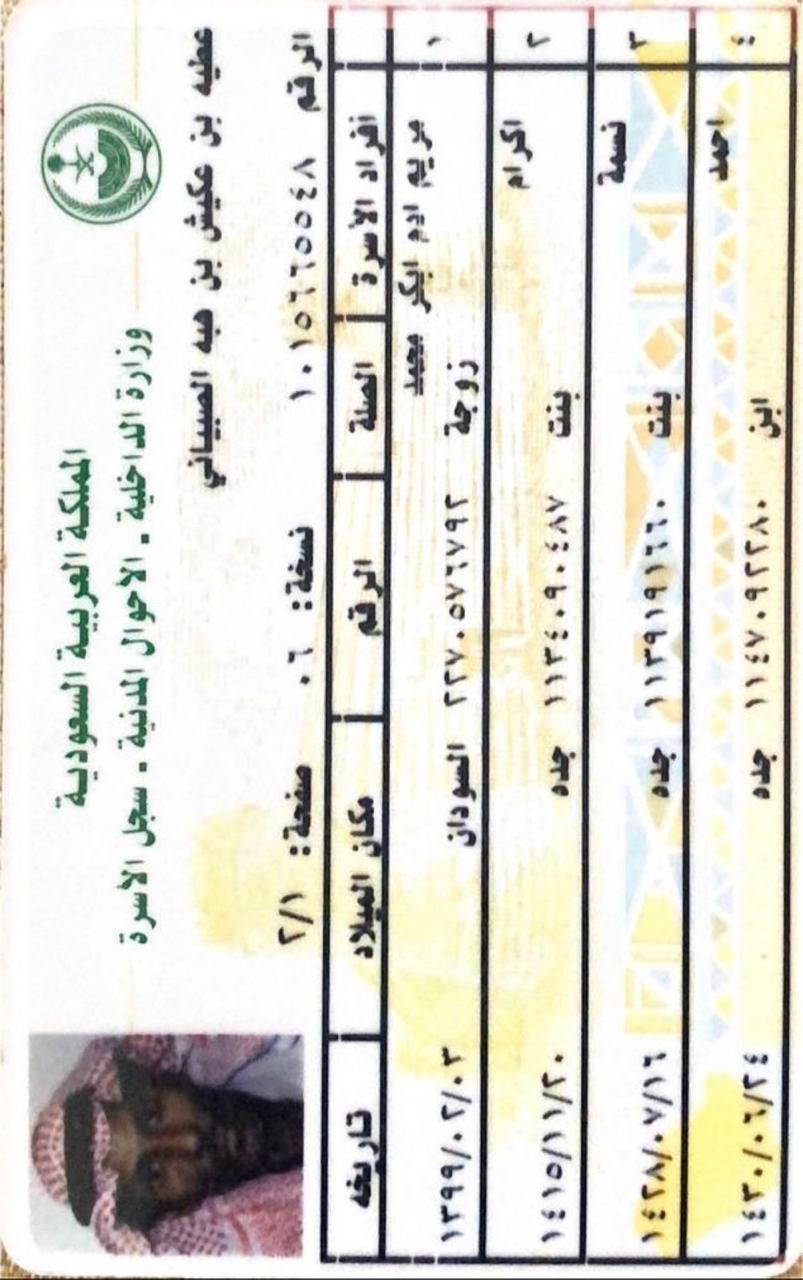 المملكة العربية السعودية
وزارة الداخلية . الاحوال المدنية . سجل الأسرة
عطيه بن عكيش بن هبه الصبياني
الرقم ١٠١٥٦٦٥٥٤٨ نسخة: ٠٦ صفحة: ٢/١
افراد الأسرة الصلة الرقم مكان الميلاد تاريخه
١ مريم ادم ابكر محمد زوجة ٢٢٧٠٥٧٦٧٩٢ السودان ١٣٩٩/٠٢/٠٣
٢ اكرام بنت ١١٣٤٠٩٠٤٨٧ جده ١٤١٥/١١/٢٠
٣ نسمة بنت ١١٣٩١٩١٦٦٠ جده ١٤٢٨/٠٧/١٦
٤ احمد ابن ١١٤٧٠٩٢٢٨٠ جده ١٤٣٠/٠٦/٢٤